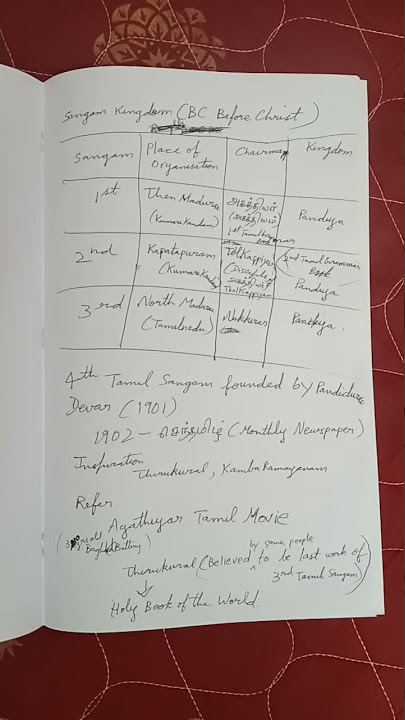 Sangam Kingdom (BC Before Christ)
Sangam Place of Organisation Chairman Kingdom
1st Then Madurai (Kumari Kandam) அகத்தியர் (அகத்தியம்) 1st Tamil Grammar Book Pandya
2nd Kapatapuram (Kumari Kandam) Tolkappiyar (Disciple of அகத்தியர்) Tholkappiyam (2nd Tamil Grammar Book) Pandya
3rd North Madurai (Tamilnadu) Nakkirar Pandya.
4th Tamil Sangam founded by Pandidurai
Devar (1901)
1902 - செந்தமிழ் (Monthly Newspaper)
Inspiration
Thirukural, Kamba Ramayanam
Refer
Agathiyar Tamil Movie
Thirukural (Believed by some people to be last work of
3rd Tamil Sangam)
Holy Book of the World.